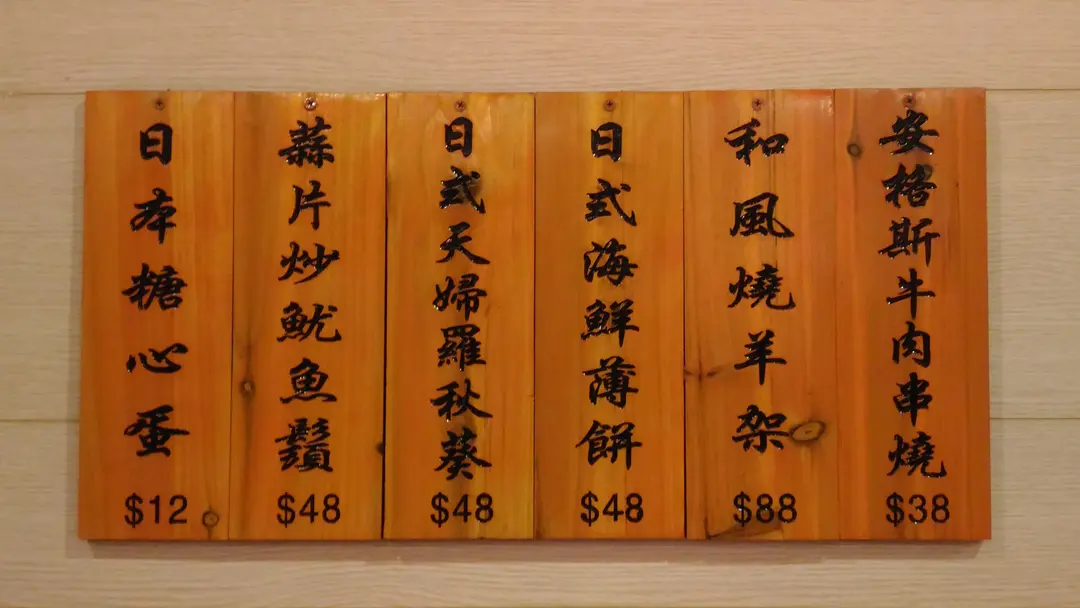 安格斯牛肉串燒
$38
和風燒羊架
$88
日式海鮮薄餅
$48
日式天婦羅秋葵
$48
蒜片炒魷魚鬚
$48
日本糖心蛋
$12